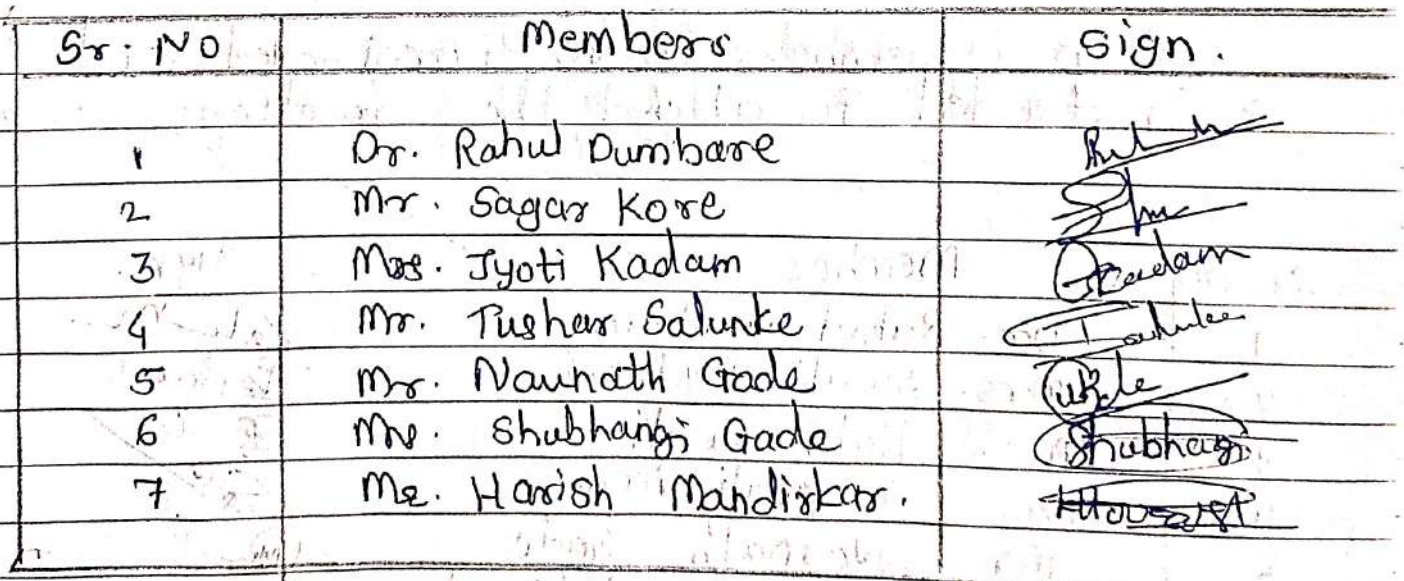 Sr. No Members Sign.
1 Dr. Rahul Dumbare
2 Mr. Sagar Kore
3 Mrs. Jyoti Kadam Kadam
4 Mr. Tushar Salunke
5 Mr. Navnath Gade
6 Mrs. Shubhangi Gade Shubhangi
7 Mr. Harish Mandirkar.